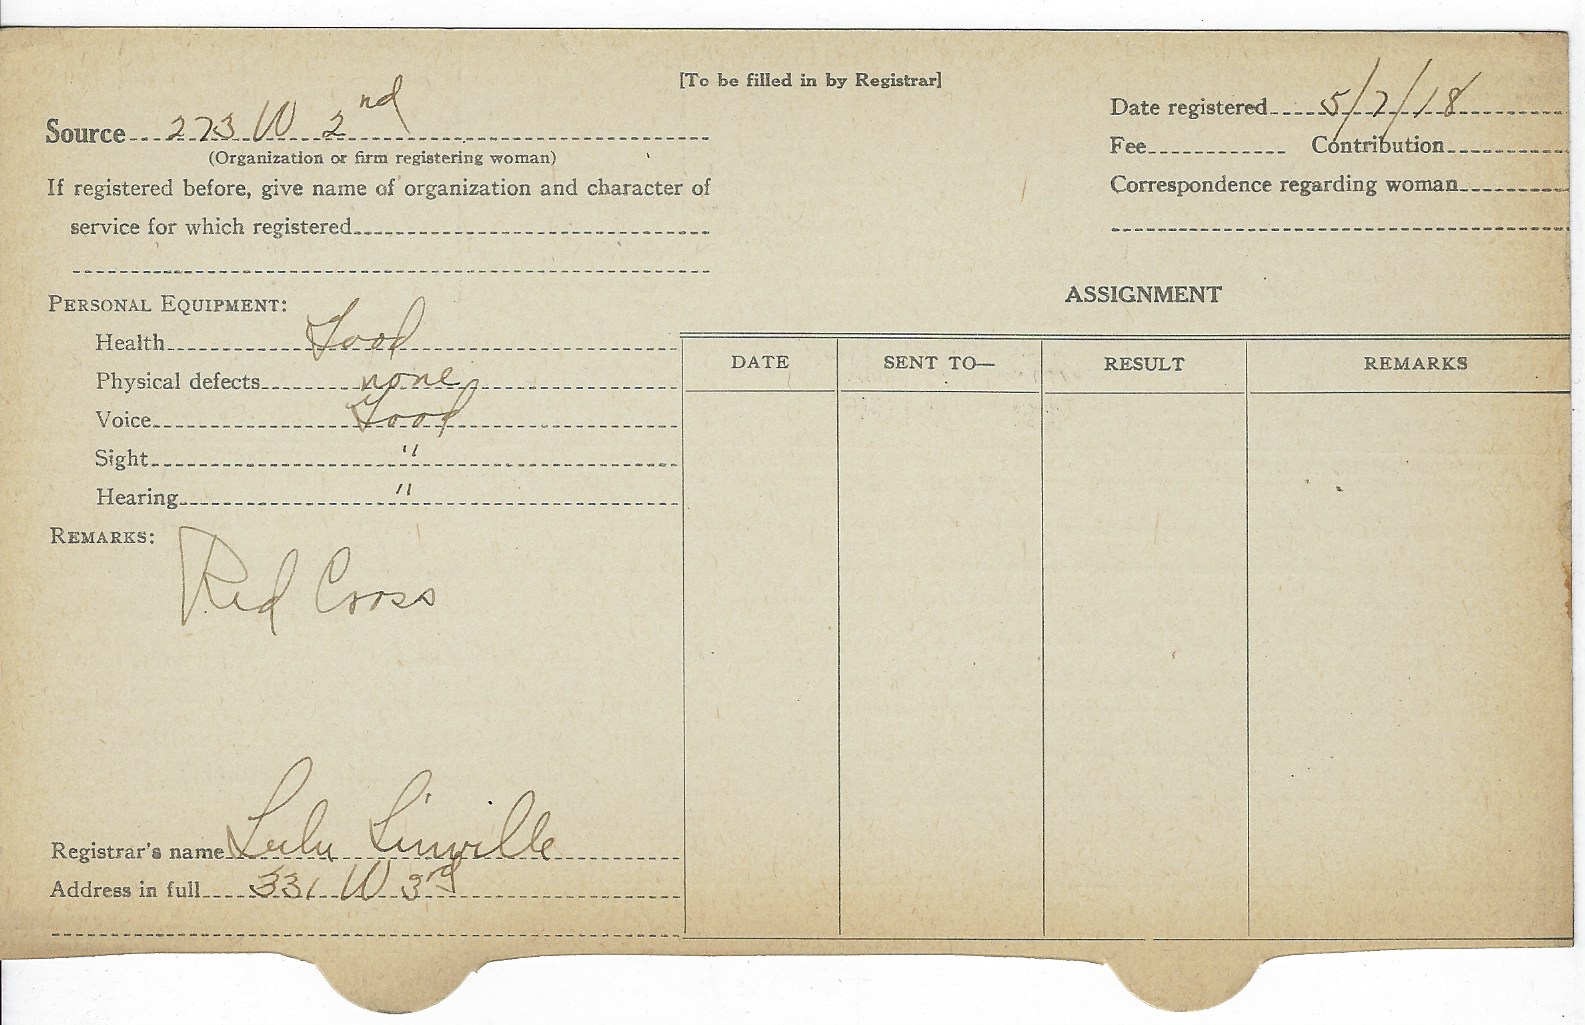 [To be filled in by Registrar]
Source 273 W 2nd
(Organization or firm registering woman)
If registered before, give name of organization and character of
service for which registered
Date registered 5/7/18
Fee Contribution
Correspondence regarding woman
PERSONAL EQUIPMENT:
Health Good
Physical defects none
Voice Good
Sight "
Hearing "
REMARKS:
Red Cross
Registrar's name Lulu Linville
Address in full 331 W 3rd
ASSIGNMENT
DATE SENT TO— RESULT REMARKS